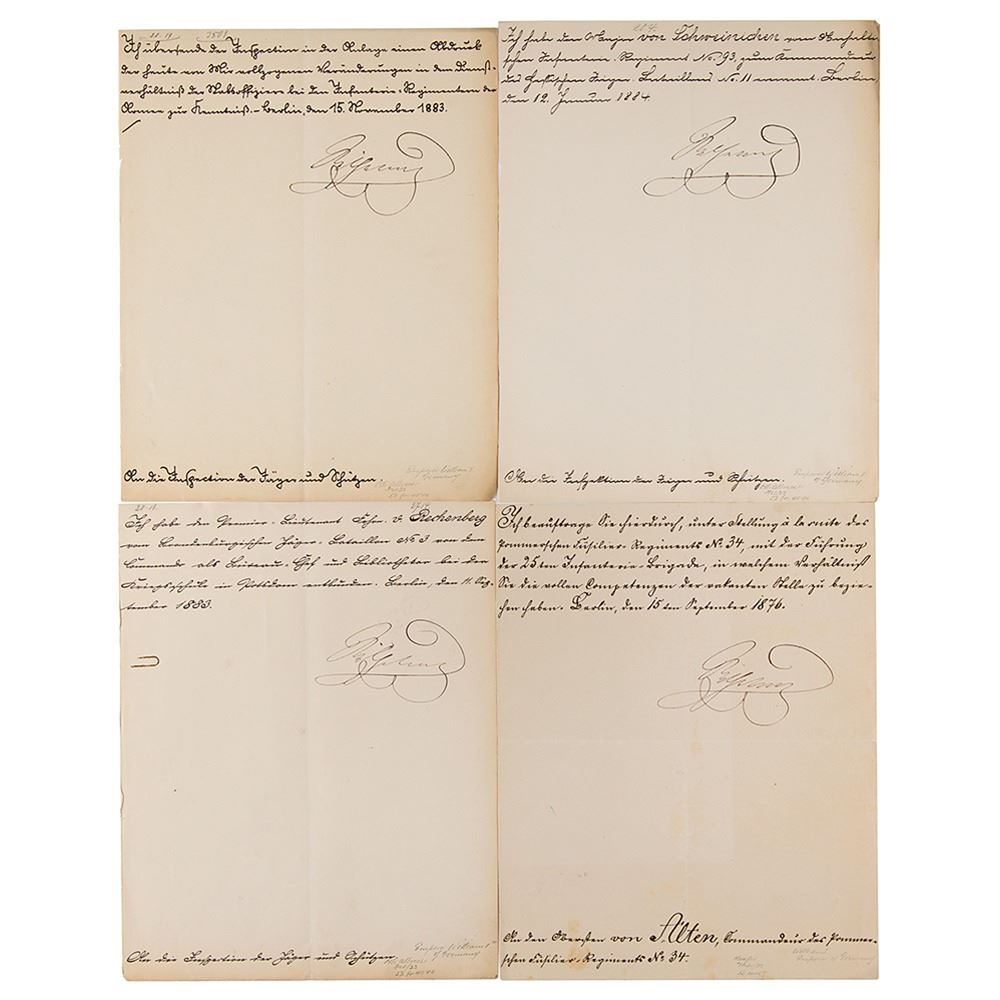 Ich übersende der Inspection in der Anlage einen Abdruck
der heute von Mir vollzogenen Veränderungen in dem Dienst-
verhältniß der Stabsoffiziere bei den Infanterie-Regimentern der
Armee zur Kenntniß. – Berlin, den 15. November 1883.
Wilhelm
An die Inspection der Jäger und Schützen.
Ich habe den Major von Schweinichen vom Anhalti-
schen Infanterie-Regiment No. 93, zum Kommandeur
des Hessischen Jäger-Bataillons No. 11 ernannt. Berlin,
den 12. Januar 1884.
Wilhelm
An die Inspektion der Jäger und Schützen.
Emperor William I
of Germany
Ich habe den Premier-Lieutenant Frhrn. v. Rechenberg
vom Brandenburgischen Jäger-Bataillon No 3 von dem
Commando als Bureau-Chef und Bibliothekar bei der
Kriegsschule in Potsdam entbunden. Berlin, den 11. Sep-
tember 1883.
Wilhelm
An die Inspection der Jäger und Schützen.
Emperor William I
of Germany
Ich beauftrage Sie hierdurch, unter Stellung à la suite des
Pommerschen Füsilier-Regiments No 34, mit der Führung
der 25ten Infanterie-Brigade, in welchem Verhältniß
Sie die vollen Competenzen der vakanten Stelle zu bezie-
hen haben. Berlin, den 15ten September 1876.
Wilhelm
An den Obersten von Alten, Commandeur des Pommer-
schen Füsilier-Regiments No 34.